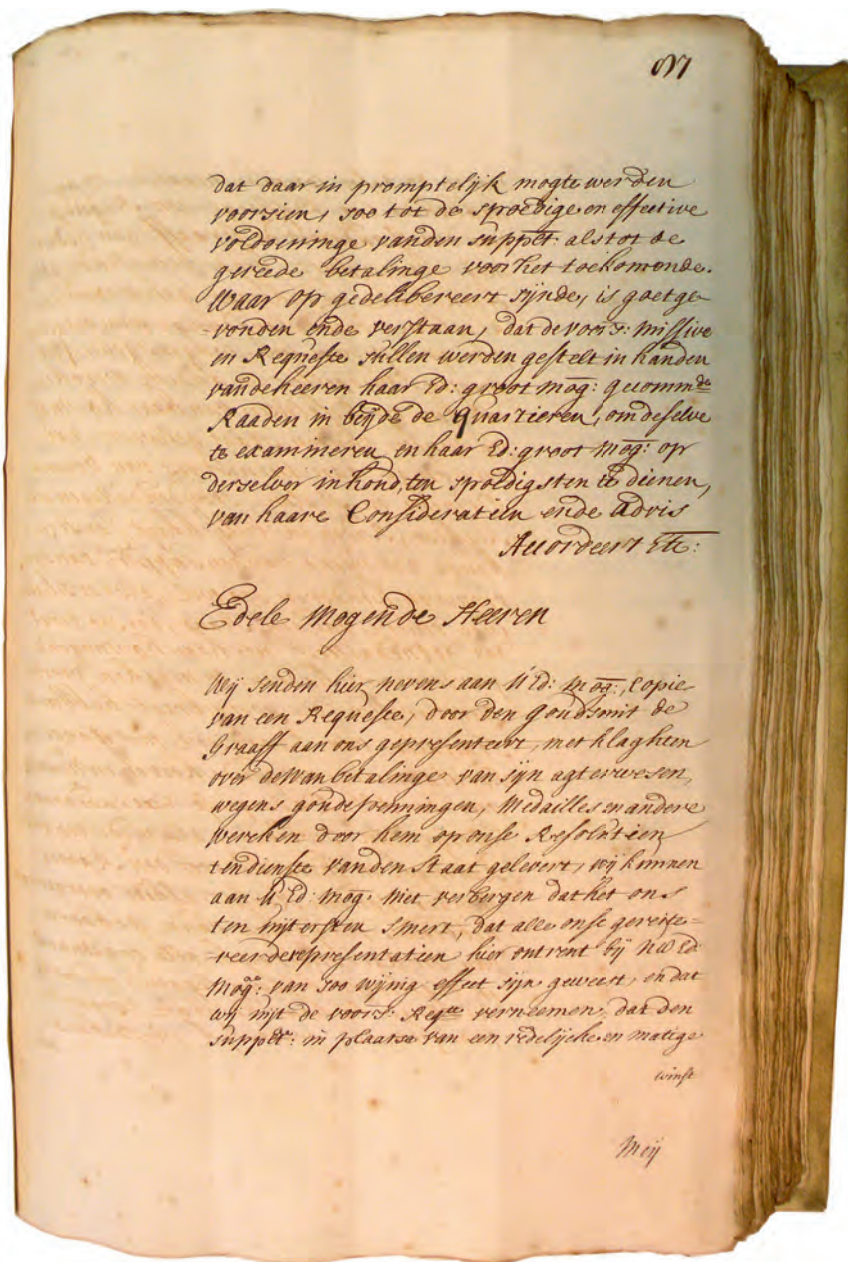 dat daar in promptelijk mogte werden
voorsien, soo tot de spoedige en effective
voldoeninge vanden supplt: als tot de
gereede betalinge voor het toekomende.
Waar op gedelibereert sijnde, is goetge-
-vonden ende verstaan, dat de voors: missive
en Requeste sullen werden gestelt in handen
vande heeren haar Ed: groot mog: gecommde
Raaden in beijde de Quartieren, om deselve
te examineren en haar Ed: groot mog: op
derselver inhoud, ten spoedigsten te dienen,
van haare Consideratien ende advis
Accordeert Etc:
Edele Mogende Heeren
Wij senden hier nevens aan U Ed: mog:, Copie
van een Requeste, door den goudsmit de
Graaff aan ons gepresenteert, met klaghten
over de wanbetalinge van sijn agterwesen,
wegens goudepenningen, Medailles en andere
wercken door hem op onse Resolutien
ten dienste vanden Staat gelevert, wij kunnen
aan U Ed: mog: niet verbergen dat het ons
ten uijtersten smert, dat alle onse gereite-
-reerde representatien hier ontrent bij UW Ed
Mog: van soo wijnig effect sijn geweest, en dat
wij uijt de voors: Reqte verneemen, dat den
supplt: in plaatse van een redelijcke en matige
winst
Meij